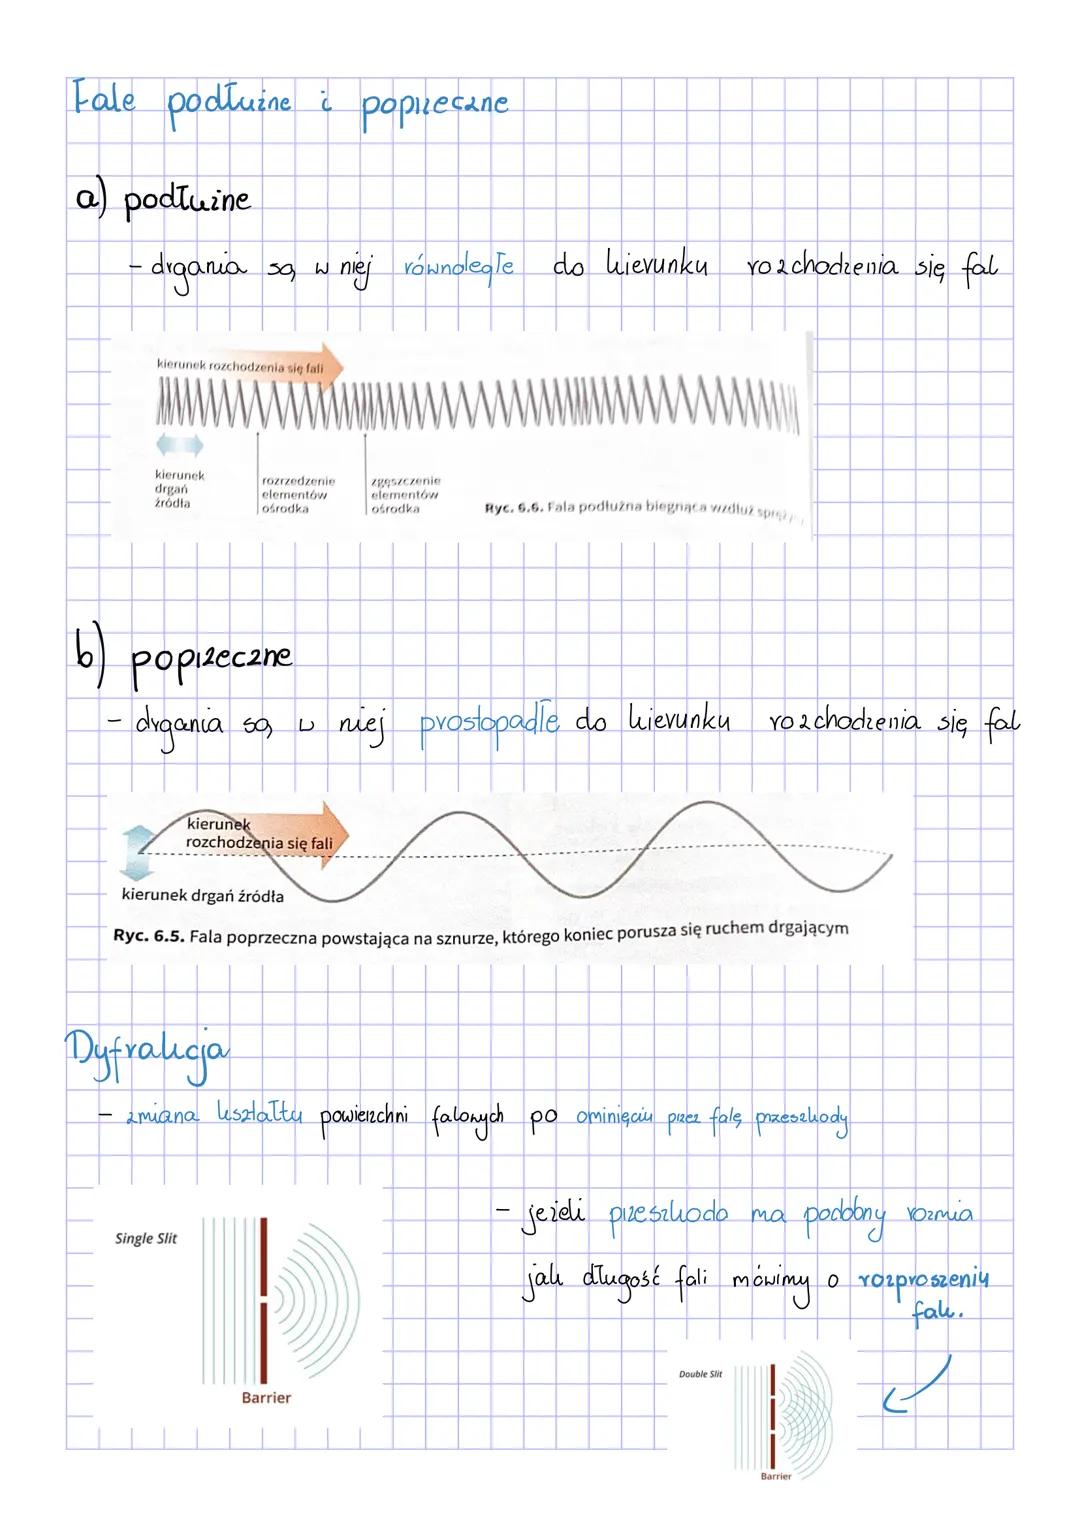 Fale podłużne i poprzeczne
a) podłużne
- drgania są w niej równoległe do kierunku rozchodzenia się fal
kierunek rozchodzenia się fali
kierunek drgań źródła
rozrzedzenie elementów ośrodka
zgęszczenie elementów ośrodka
Ryc. 6.6. Fala podłużna biegnąca wzdłuż spręży
b) poprzeczne
- drgania są w niej prostopadłe do kierunku rozchodzenia się fal
kierunek
rozchodzenia się fali
kierunek drgań źródła
Ryc. 6.5. Fala poprzeczna powstająca na sznurze, którego koniec porusza się ruchem drgającym
Dyfrakcja
- zmiana kształtu powierzchni falowych po ominięciu przez falę przeszkody
- jeżeli przeszkoda ma podobny rozmia
jak długość fali mówimy o rozproszeniu
fak.
Single Slit
Barrier
Double Slit
Barrier